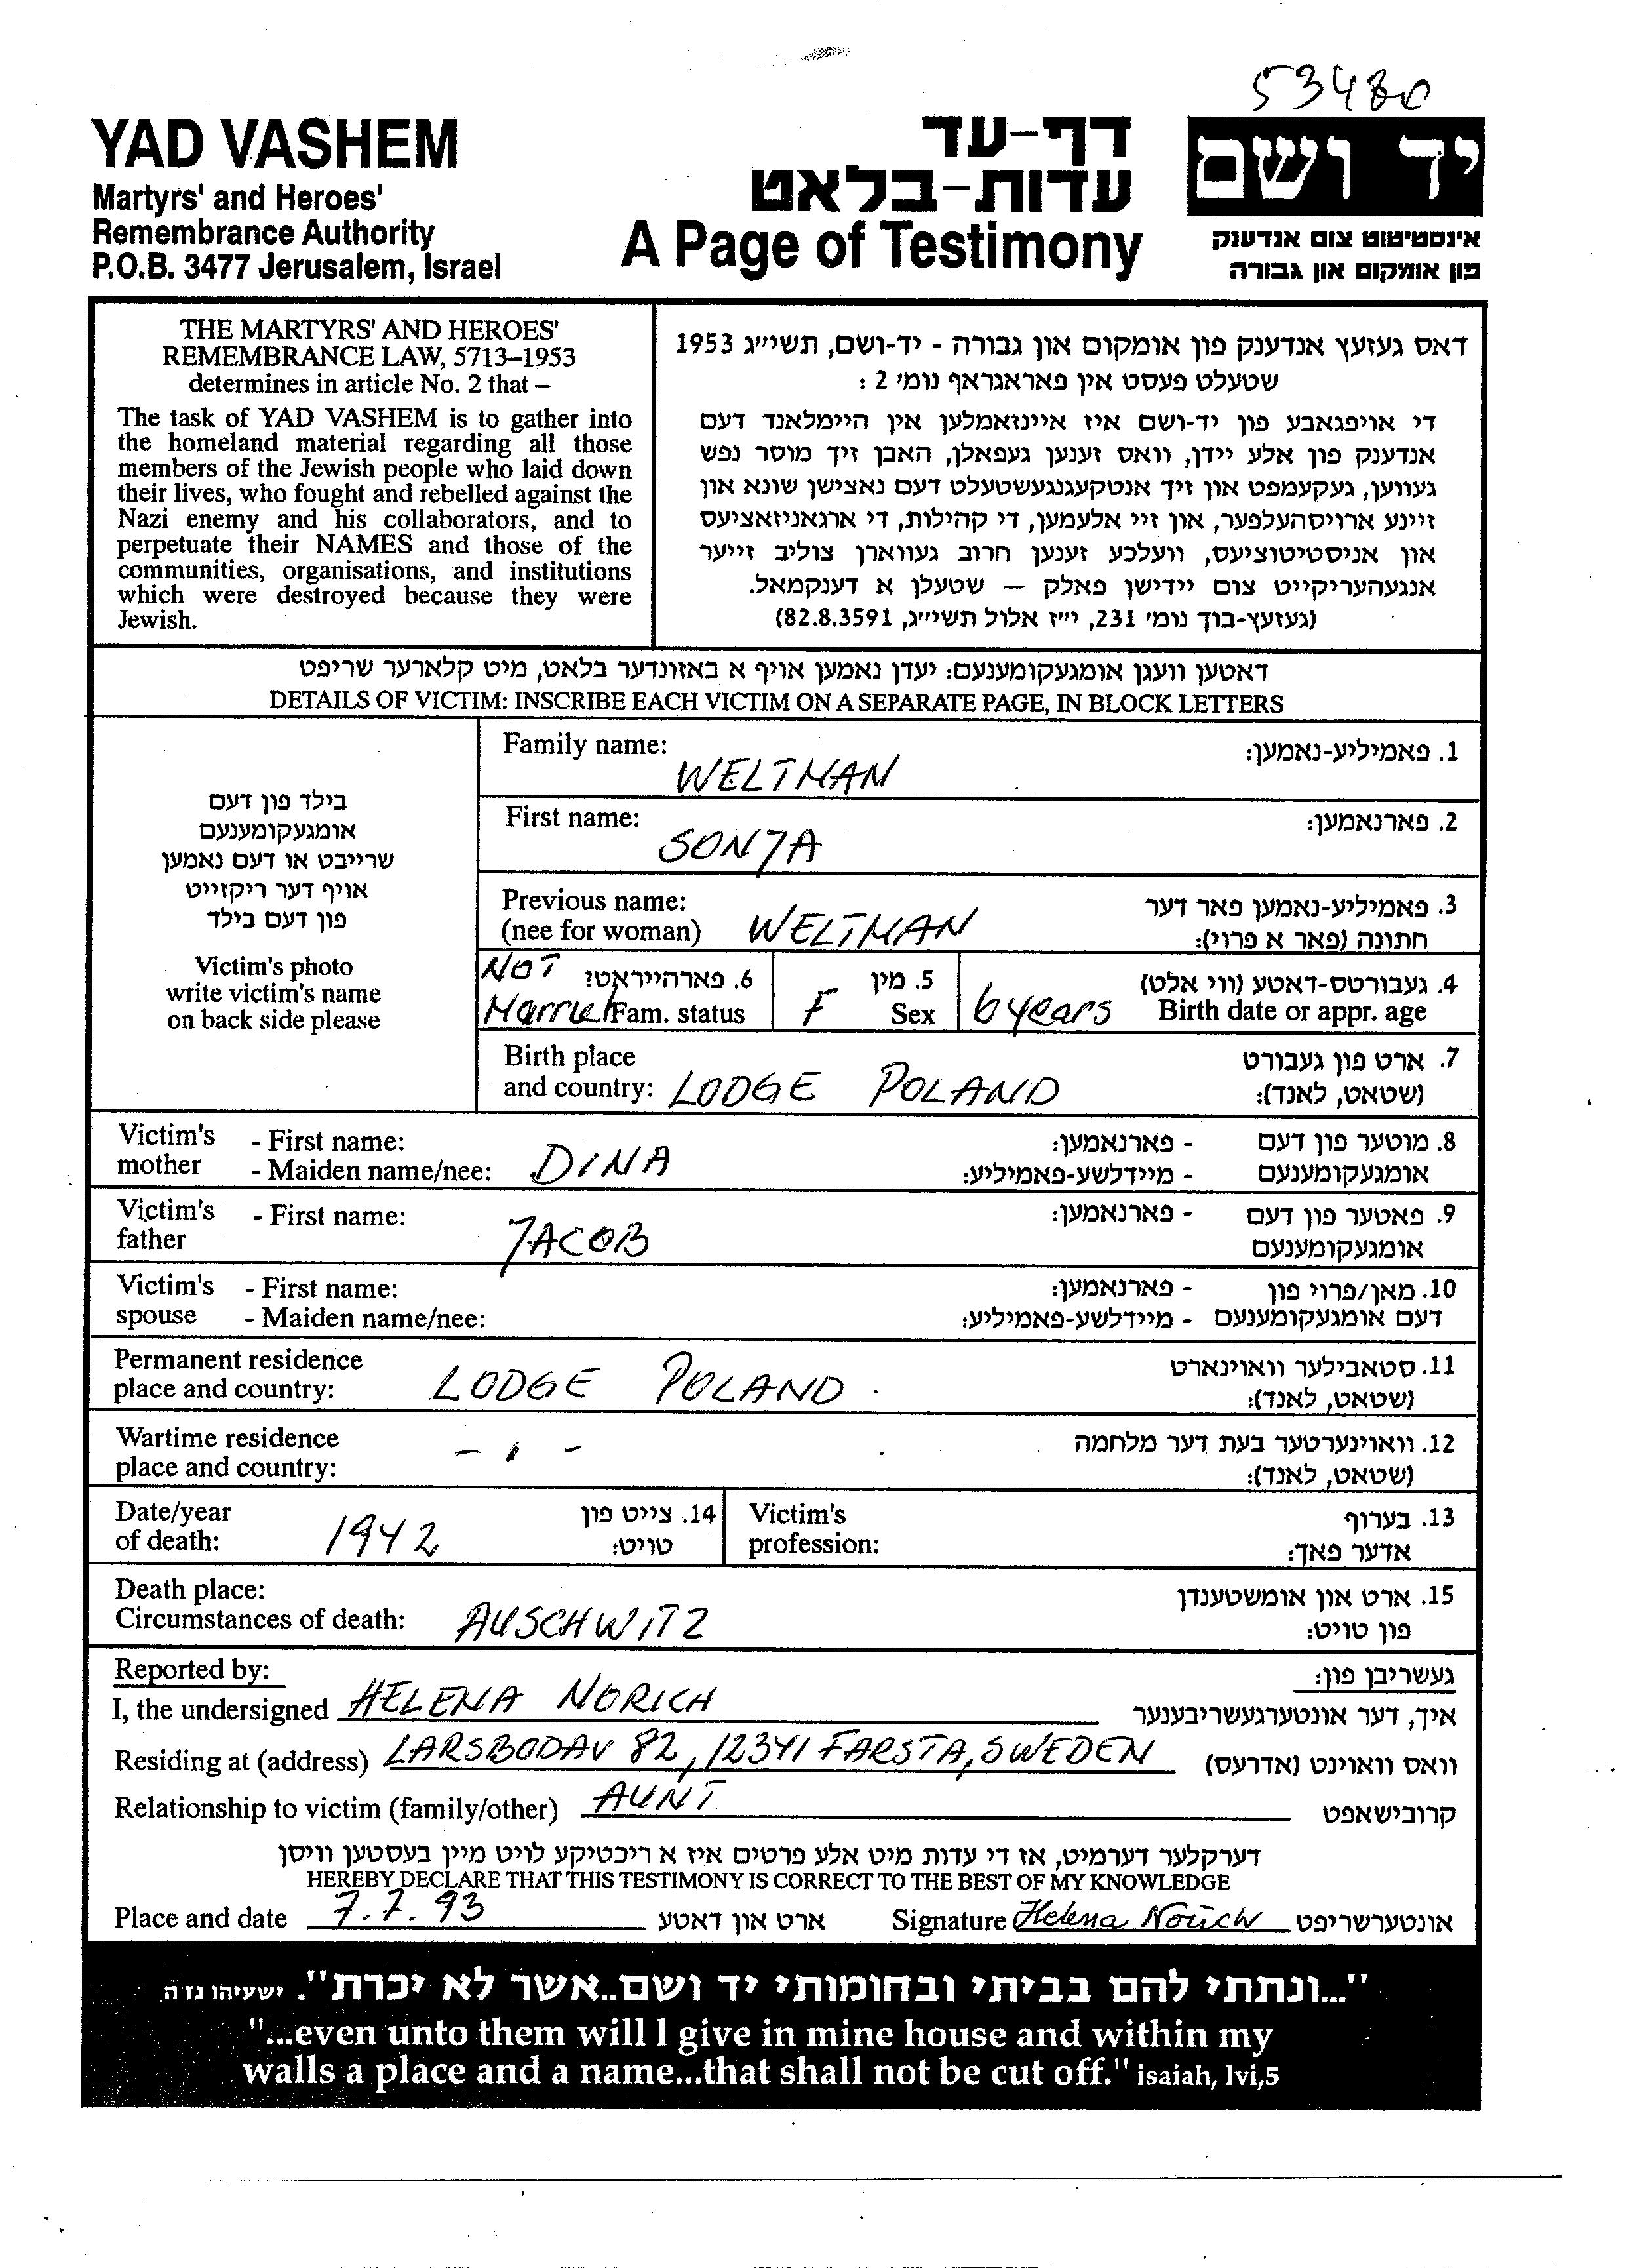 53480
YAD VASHEM
Martyrs' and Heroes'
Remembrance Authority
P.O.B. 3477 Jerusalem, Israel
דף-עד
עדות-בלאט
A Page of Testimony
יד ושם
אינסטיטוט צום אנדענק
פון אומקום און גבורה
THE MARTYRS' AND HEROES'
REMEMBRANCE LAW, 5713–1953
determines in article No. 2 that –
The task of YAD VASHEM is to gather into
the homeland material regarding all those
members of the Jewish people who laid down
their lives, who fought and rebelled against the
Nazi enemy and his collaborators, and to
perpetuate their NAMES and those of the
communities, organisations, and institutions
which were destroyed because they were
Jewish.
דאס געזעץ אנדענק פון אומקום און גבורה - יד-ושם, תשי״ג 1953
שטעלט פעסט אין פאראגראף נומ׳ 2 :
די אויפגאבע פון יד-ושם איז איינזאמלען אין היימלאנד דעם
אנדענק פון אלע יידן, וואס זענען געפאלן, האבן זיך מוסר נפש
געווען, געקעמפט און זיך אנטקעגנגעשטעלט דעם נאצישן שונא און
זיינע ארויסהעלפער, און זיי אלעמען, די קהילות, די ארגאניזאציעס
און אניסטיטוציעס, וועלכע זענען חרוב געווארן צוליב זייער
אנגעהעריקייט צום יידישן פאלק – שטעלן א דענקמאל.
(געזעץ-בוך נומ׳ 231, י״ז אלול תשי״ג, 82.8.3591)
דאטען וועגן אומגעקומענעם: יעדן נאמען אויף א באזונדער בלאט, מיט קלארער שריפט
DETAILS OF VICTIM: INSCRIBE EACH VICTIM ON A SEPARATE PAGE, IN BLOCK LETTERS
בילד פון דעם
אומגעקומענעם
שרייבט או דעם נאמען
אויף דער ריקזייט
פון דעם בילד
Victim's photo
write victim's name
on back side please
Family name: WELTMAN 1. פאמיליע-נאמען:
First name: SONJA 2. פארנאמען:
Previous name: 3. פאמיליע-נאמען פאר דער
(nee for woman) WELTMAN חתונה (פאר א פרוי):
NOT 6. פארהייראט? 5. מין 4. געבורטס-דאטע (ווי אלט)
Married Fam. status F Sex 6 years Birth date or appr. age
Birth place 7. ארט פון געבורט
and country: LODGE POLAND (שטאט, לאנד):
Victim's - First name: - פארנאמען: 8. מוטער פון דעם
mother - Maiden name/nee: DINA - מיידלשע-פאמיליע: אומגעקומענעם
Victim's - First name: - פארנאמען: 9. פאטער פון דעם
father JACOB אומגעקומענעם
Victim's - First name: - פארנאמען: 10. מאן/פרוי פון
spouse - Maiden name/nee: - מיידלשע-פאמיליע: דעם אומגעקומענעם
Permanent residence 11. סטאבילער וואוינארט
place and country: LODGE POLAND . (שטאט, לאנד):
Wartime residence - ׀ - 12. וואוינערטער בעת דער מלחמה
place and country: (שטאט, לאנד):
Date/year 14. צייט פון Victim's 13. בערוף
of death: 1942 טויט: profession: אדער פאך:
Death place: 15. ארט און אומשטענדן
Circumstances of death: AUSCHWITZ פון טויט:
Reported by: געשריבן פון:
I, the undersigned HELENA NORICH איך, דער אונטערגעשריבענער
Residing at (address) LARSBODAV 82, 12341 FARSTA, SWEDEN וואס וואוינט (אדרעס)
Relationship to victim (family/other) AUNT קרובישאפט
דערקלער דערמיט, אז די עדות מיט אלע פרטים איז א ריכטיקע לויט מיין בעסטען וויסן
HEREBY DECLARE THAT THIS TESTIMONY IS CORRECT TO THE BEST OF MY KNOWLEDGE
Place and date 7.7.93 ארט און דאטע Signature Helena Norich אונטערשריפט
"...ונתתי להם בביתי ובחומותי יד ושם..אשר לא יכרת". ישעיהו נז׳ה
"...even unto them will I give in mine house and within my
walls a place and a name...that shall not be cut off." isaiah, lvi,5